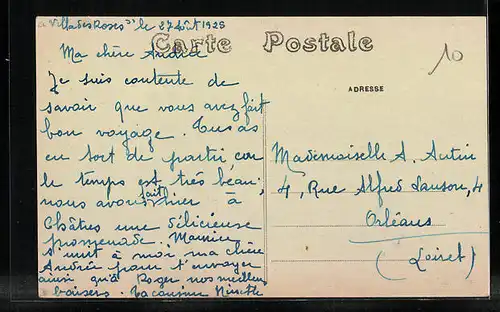 "Villa des Roses" le 27 Août 1928
Carte Postale
10
ADRESSE
Ma chère Andrée
Je suis contente de
savoir que vous avez fait
bon voyage. Tu as
eu tort de partir, car
le temps est très beau;
nous avons fait hier à
Châtres une délicieuse
promenade. Mamie
s'unit à moi ma chère
Andrée pour t'envoyer
ainsi qu'à Roger nos meilleurs
baisers. Ta cousine
Mademoiselle A. Autin
4, Rue Alfred Lanson, 4
Orléans
(Loiret)